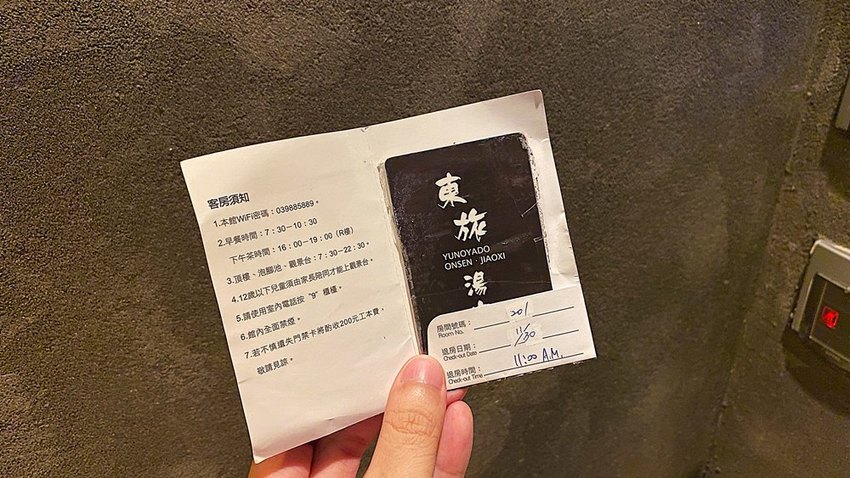 客房須知
1.本館WiFi密碼：039885889。
2.早餐時間：7：30－10：30
下午茶時間：16：00－19：00（R樓）
3.頂樓、泡腳池、觀景台：7：30－22：30。
4.12歲以下兒童須由家長陪同才能上觀景台。
5.請使用室內電話按“9”櫃檯。
6.館內全面禁煙。
7.若不慎遺失門禁卡將酌收200元工本費，
敬請見諒。
東旅
YUNOYADO
ONSEN · JIAOXI
湯
房間號碼：201
Room No.
退房日期：11/30
Check-out Date
退房時間：11:00 A.M.
Check-out Time